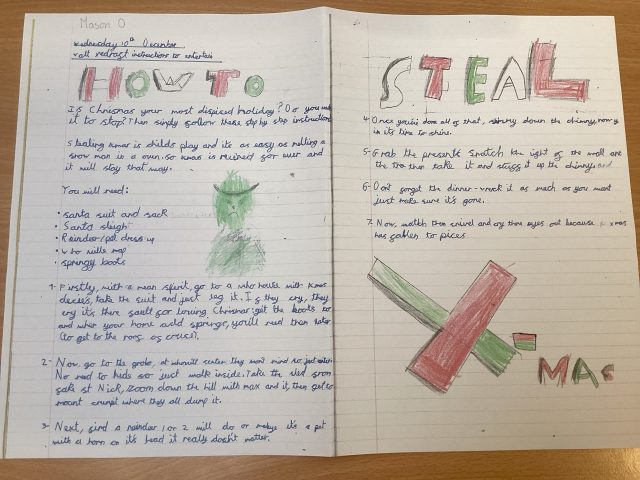 Mason O
Wednesday 10th December
walt redraft instructions to entertain
HOW TO
Is Chrismas your most dispised holiday? Do you want
it to stop? Then simply follow these step by step instructions
Stealing xmas is childs play and it's as easy as melting a
snow man in a oven. So xmas is ruined for ever and it
will stay that way.
You will need:
• santa suit and sack
• Santa sleigh
• Reinder/pet dress up
• who ville map
• springy boots
1- Firstly, with a mean spirit, go to a who house with xmas
decies, take the suit and just leg it. If they cry, they
cry it's there fault for loving Chrismas get the boots to
and when your home add springs, you'll need them later
(to get to the roof of cource).
2- Now, go to the grotto, at whovill center they won't mind so just enter.
No need to hide so just walk inside. Take the sled from
fake st Nick, zoom down the hill with max and it, then get to
mount crumpt where they all dump it.
3- Next, find a reinder 1 or 2 will do or maybe it's a pet
with a horn on it's head it really dosn't matter.
STEAL
4- Once you've done all of that, down the chimny, now
in its time to shine.
5- Grab the presents snatch the light of the wall and
the tree then take it and stuff it up the chimny
6- Don't forget the dinner - wreck it as much as you want
just make sure it's gone.
7- Now, watch them snivel and cry there eyes out because xmas
has fallen to pices
X-MAS